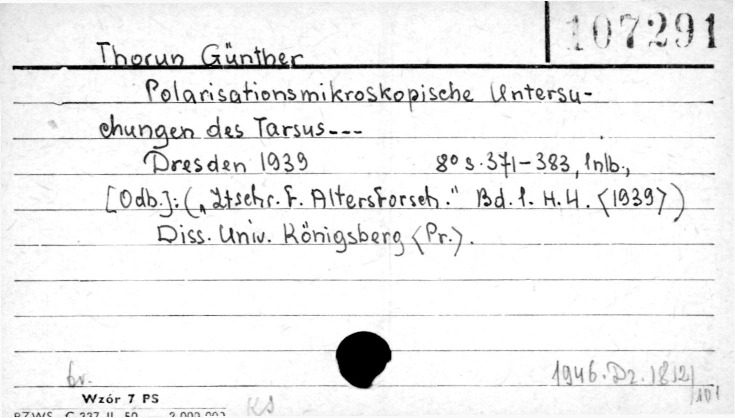 107291
Thorun Günther
Polarisationsmikroskopische Untersu-
chungen des Tarsus---
Dresden 1939 8° s. 371-383, 1nlb.,
[Odb.]: („Ztschr. f. Altersforsch." Bd. 1. H. 4. <1939>)
Diss. Univ. Königsberg <Pr.>.
br. 1946. Dz. 1812/
101
Wzór 7 PS
PZWS C 337 II 50 2.000.000
KS